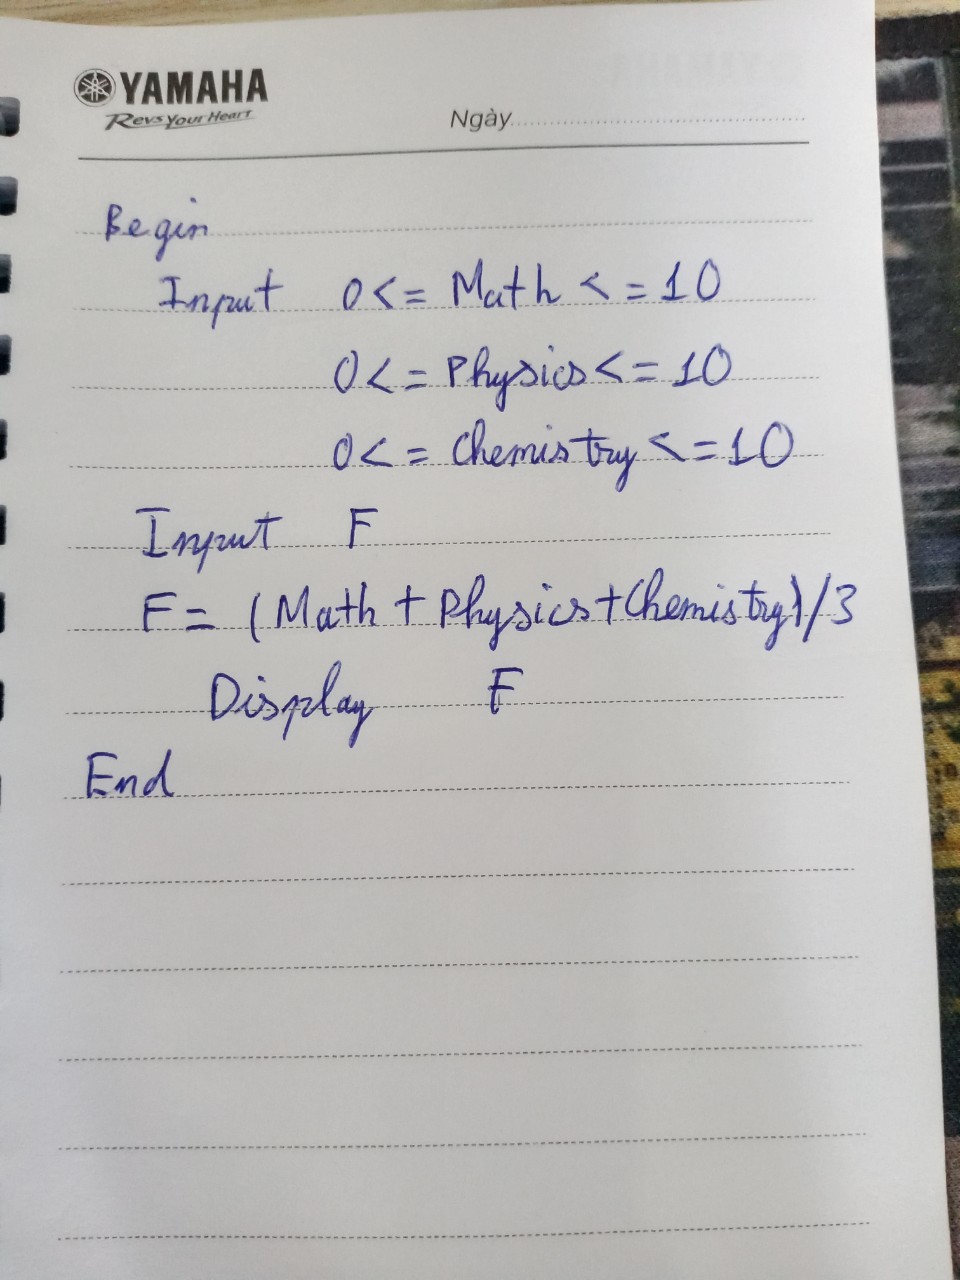 YAMAHA
Revs Your Heart
Ngày
Begin
Input 0<= Math <=10
0<= Physics <=10
0<= Chemistry <=10
Input F
F= (Math + Physics + Chemistry)/3
Display F
End